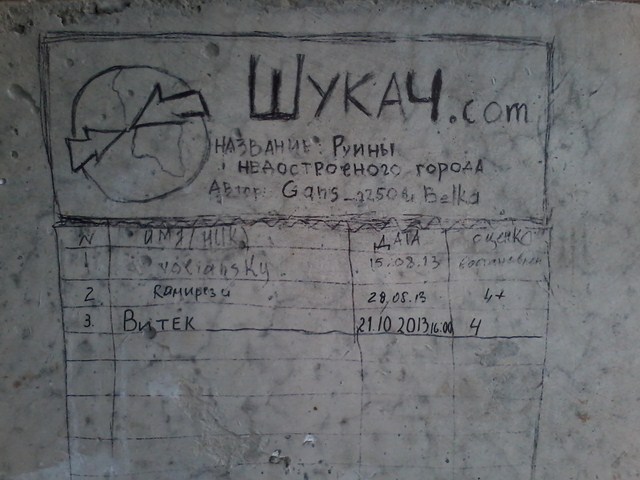 ШУКАЧ.com
НАЗВАНИЕ: РУИНЫ
НЕДОСТРОЕНОГО ГОРОДА
АВТОР: Gans_ Belka
N ИМЯ(НИК) ДАТА ОЦЕНКА
1 15.08.13
2 Рамирези 28.08.13 4+
3. ВИТЕК 21.10.2013 16:00 4